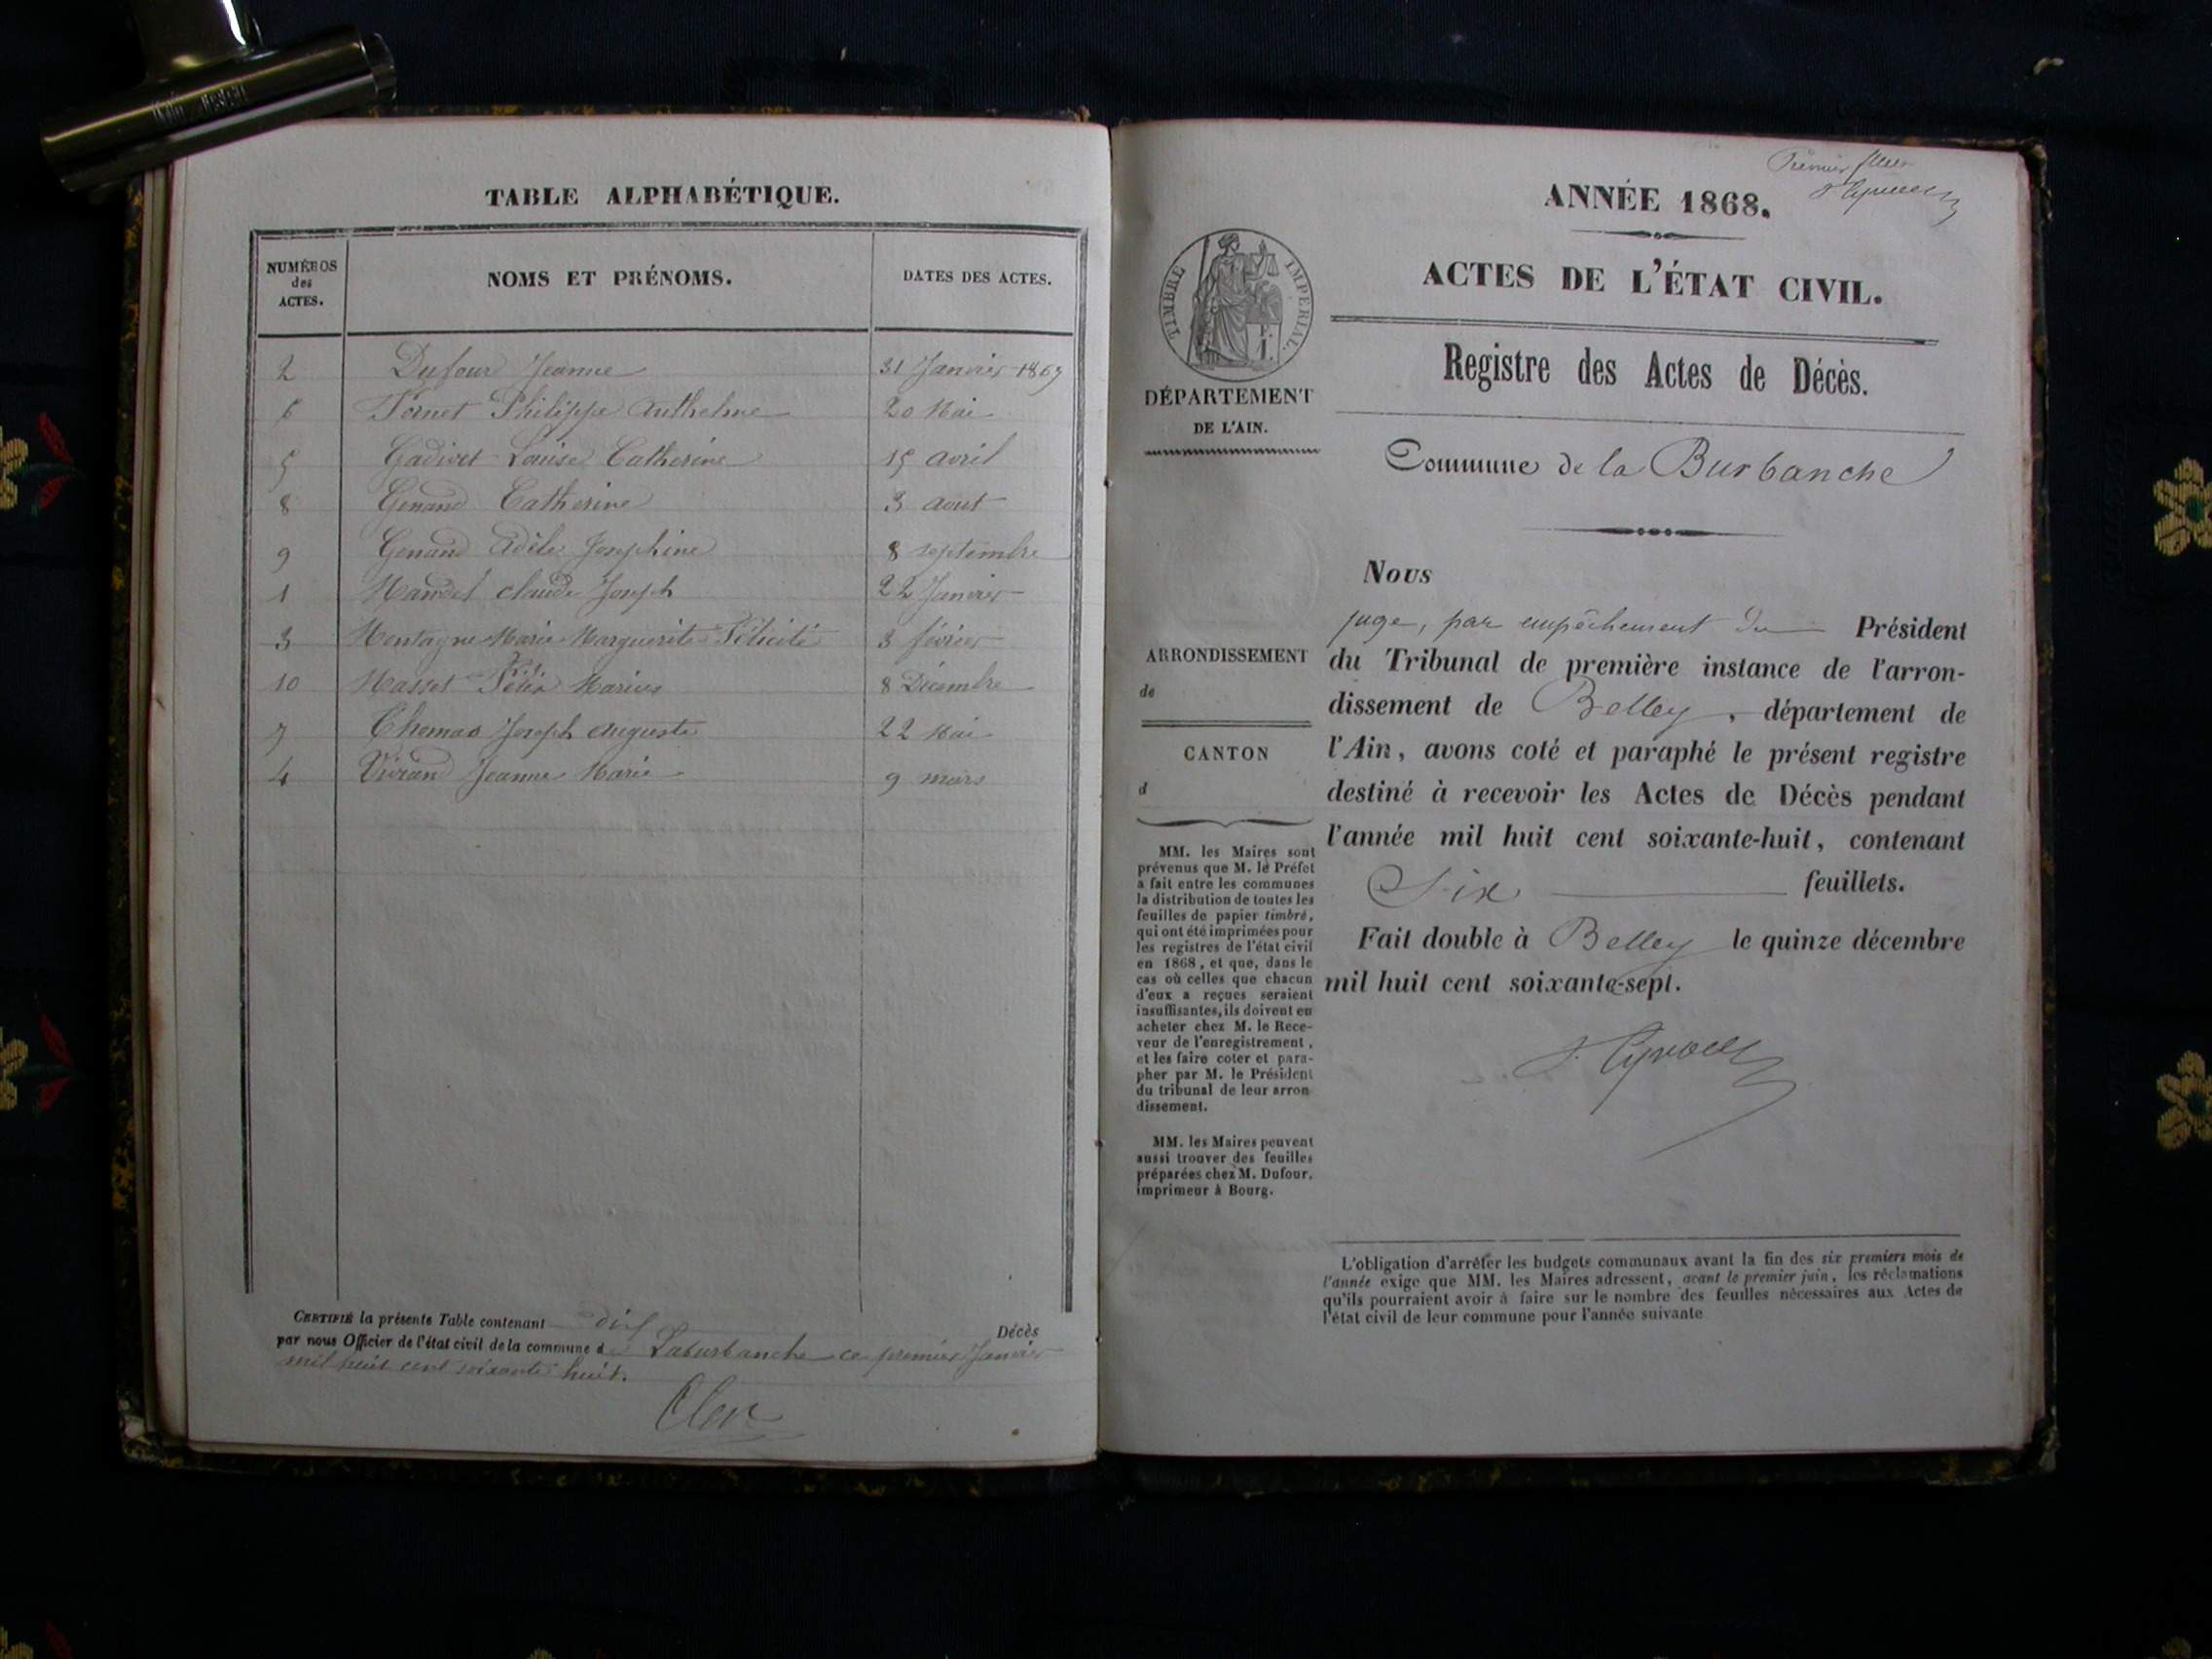 TABLE ALPHABÉTIQUE.
NUMÉROS
des
ACTES.
NOMS ET PRÉNOMS.
DATES DES ACTES.
2 Dufour Jeanne 31 Janvier 1867
6 Fornet Philippe Anthelme 20 Mai
5 Gadivet Louise Catherine 15 avril
8 Genand Catherine 3 aout
9 Genand Adèle Joséphine 8 septembre
1 Mandet claude Joseph 22 Janvier
3 Montagne Marie Marguerite Félicité 3 février
10 Masset Félix Marius 8 Décembre
7 Thomas Joseph auguste 22 Mai
4 Vivian Jeanne Marie 9 mars
CERTIFIÉ la présente Table contenant dix Décès
par nous Officier de l'état civil de la commune de Laburbanche ce premier Janvier
mil huit cent soixante huit.
Clerc
Premier
ANNÉE 1868.
ACTES DE L'ÉTAT CIVIL.
TIMBRE IMPÉRIAL.
DÉPARTEMENT
DE L'AIN.
Registre des Actes de Décès.
Commune de la Burbanche
Nous
juge, par empêchement du Président
du Tribunal de première instance de l'arron-
dissement de Belley, département de
l'Ain, avons coté et paraphé le présent registre
destiné à recevoir les Actes de Décès pendant
l'année mil huit cent soixante-huit, contenant
Six feuillets.
Fait double à Belley le quinze décembre
mil huit cent soixante-sept.
ARRONDISSEMENT
de
CANTON
d
MM. les Maires sont
prévenus que M. le Préfet
a fait entre les communes
la distribution de toutes les
feuilles de papier timbré,
qui ont été imprimées pour
les registres de l'état civil
en 1868, et que, dans le
cas où celles que chacun
d'eux a reçues seraient
insuffisantes, ils doivent en
acheter chez M. le Rece-
veur de l'enregistrement,
et les faire coter et para-
pher par M. le Président
du tribunal de leur arron-
dissement.
MM. les Maires peuvent
aussi trouver des feuilles
préparées chez M. Dufour,
imprimeur à Bourg.
L'obligation d'arrêter les budgets communaux avant la fin des six premiers mois de
l'année exige que MM. les Maires adressent, avant le premier juin, les réclamations
qu'ils pourraient avoir à faire sur le nombre des feuilles nécessaires aux Actes de
l'état civil de leur commune pour l'année suivante